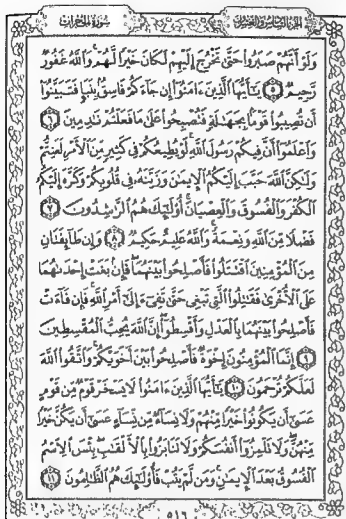 الجزء السادس والعشرون سورة الحجرات
وَلَوْ أَنَّهُمْ صَبَرُوا حَتَّىٰ تَخْرُجَ إِلَيْهِمْ لَكَانَ خَيْرًا لَّهُمْ وَاللَّهُ غَفُورٌ
رَّحِيمٌ ٥ يَا أَيُّهَا الَّذِينَ ءَامَنُوا إِن جَاءَكُمْ فَاسِقٌ بِنَبَإٍ فَتَبَيَّنُوا
أَن تُصِيبُوا قَوْمًا بِجَهَالَةٍ فَتُصْبِحُوا عَلَىٰ مَا فَعَلْتُمْ نَادِمِينَ ٦
وَاعْلَمُوا أَنَّ فِيكُمْ رَسُولَ اللَّهِ لَوْ يُطِيعُكُمْ فِي كَثِيرٍ مِّنَ الْأَمْرِ لَعَنِتُّمْ
وَلَٰكِنَّ اللَّهَ حَبَّبَ إِلَيْكُمُ الْإِيمَانَ وَزَيَّنَهُ فِي قُلُوبِكُمْ وَكَرَّهَ إِلَيْكُمُ
الْكُفْرَ وَالْفُسُوقَ وَالْعِصْيَانَ أُولَٰئِكَ هُمُ الرَّاشِدُونَ ٧
فَضْلًا مِّنَ اللَّهِ وَنِعْمَةً وَاللَّهُ عَلِيمٌ حَكِيمٌ ٨ وَإِن طَائِفَتَانِ
مِنَ الْمُؤْمِنِينَ اقْتَتَلُوا فَأَصْلِحُوا بَيْنَهُمَا فَإِن بَغَتْ إِحْدَاهُمَا
عَلَى الْأُخْرَىٰ فَقَاتِلُوا الَّتِي تَبْغِي حَتَّىٰ تَفِيءَ إِلَىٰ أَمْرِ اللَّهِ فَإِن فَاءَتْ
فَأَصْلِحُوا بَيْنَهُمَا بِالْعَدْلِ وَأَقْسِطُوا إِنَّ اللَّهَ يُحِبُّ الْمُقْسِطِينَ
٩ إِنَّمَا الْمُؤْمِنُونَ إِخْوَةٌ فَأَصْلِحُوا بَيْنَ أَخَوَيْكُمْ وَاتَّقُوا اللَّهَ
لَعَلَّكُمْ تُرْحَمُونَ ١٠ يَا أَيُّهَا الَّذِينَ ءَامَنُوا لَا يَسْخَرْ قَوْمٌ مِّن قَوْمٍ
عَسَىٰ أَن يَكُونُوا خَيْرًا مِّنْهُمْ وَلَا نِسَاءٌ مِّن نِّسَاءٍ عَسَىٰ أَن يَكُنَّ خَيْرًا
مِّنْهُنَّ وَلَا تَلْمِزُوا أَنفُسَكُمْ وَلَا تَنَابَزُوا بِالْأَلْقَابِ بِئْسَ الِاسْمُ
الْفُسُوقُ بَعْدَ الْإِيمَانِ وَمَن لَّمْ يَتُبْ فَأُولَٰئِكَ هُمُ الظَّالِمُونَ ١١
٥١٦